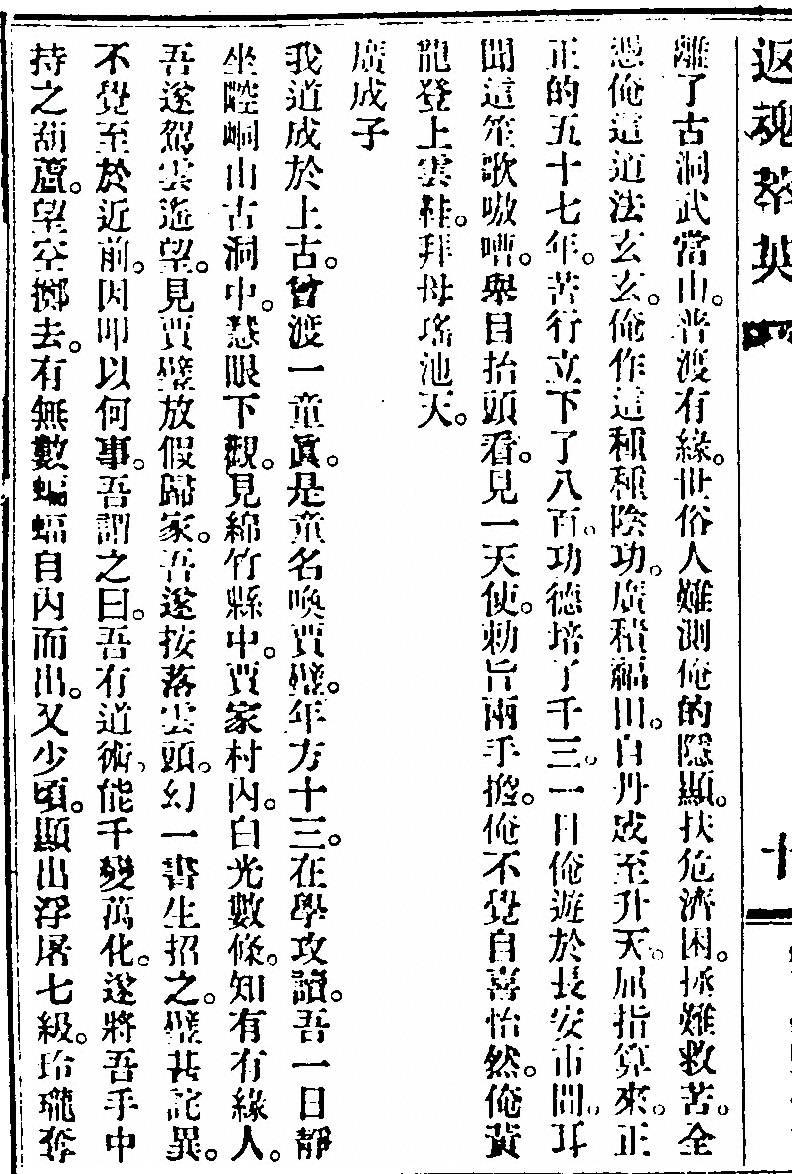 返魂萃英
十
離了古洞武當山。普渡有緣。世俗人難測俺的隱顯。扶危濟困。拯難救苦。全
憑俺這道法玄玄。俺作這種種陰功。廣積福田。自丹成至升天。屈指算來。正
正的五十七年。苦行立下了八百。功德培了千三。一日俺遊於長安市間。耳
聞這笙歌嗷嘈。舉目抬頭看。見一天使。勅旨兩手擔。俺不覺自喜怡然。俺黃
龍登上雲鞋。拜母瑤池天。
廣成子
我道成於上古。曾渡一童眞。是童名喚賈璧。年方十三。在學攻讀。吾一日靜
坐崆峒山古洞中。慧眼下觀。見綿竹縣中。賈家村內。白光數條。知有有緣人。
吾遂駕雲遙望。見賈璧放假歸家。吾遂按落雲頭。幻一書生招之。璧甚詫異。
不覺至於近前。因叩以何事。吾謂之曰。吾有道術。能千變萬化。遂將吾手中
持之葫蘆。望空擲去。有無數蝙蝠自內而出。又少頃。顯出浮屠七級。玲瓏奪